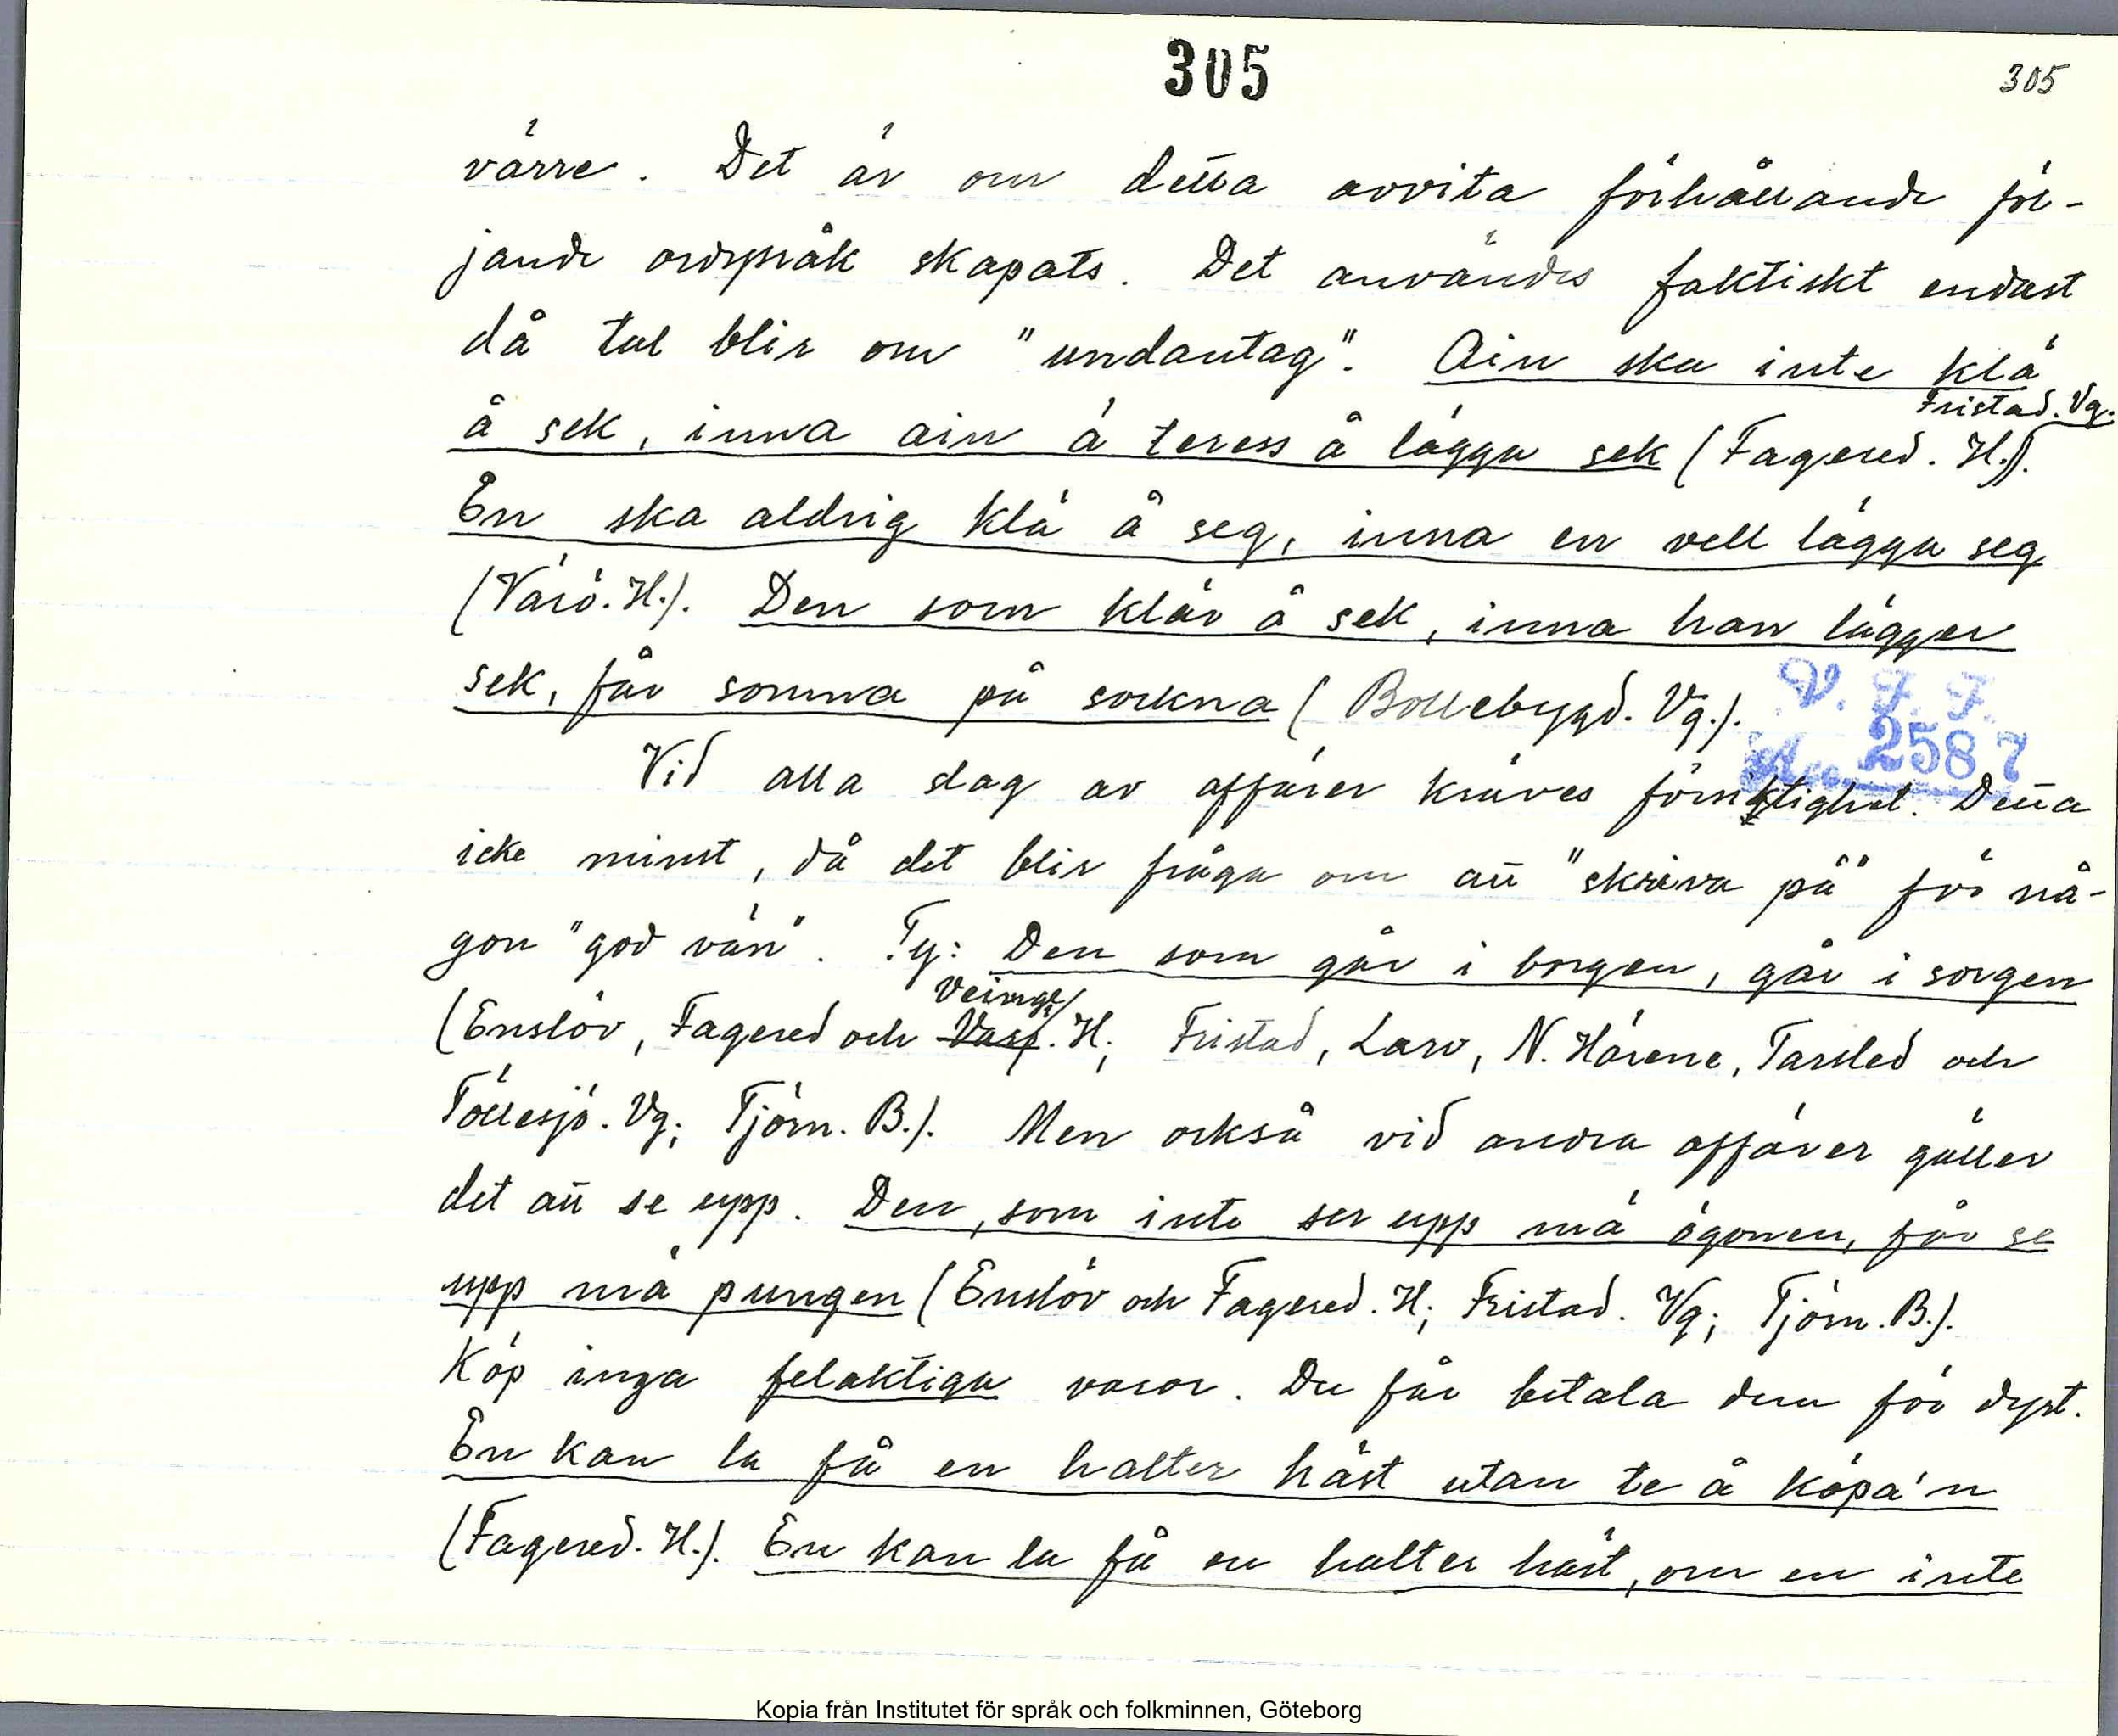 305
305
värre. Det är om detta avvita förhållande föl-
jande ordspråk skapats. Det användes faktiskt endast
då tal blir om "undantag". Ain ska inte klä
Fristad. Vg.
å sek, inna ain ä teress å lägga sek (Fagered. H.).
En ska aldrig klä å seg, inna en vell lägga seg
(Värö. H.). Den som klär å sek, inna han lägger
sek, får somna på sockna (Bollebygd. Vg.).
V. F. F.
Acc. 2587
Vid alla slag av affärer kräves försiktighet. Detta
icke minst, då det blir fråga om att "skriva på" för nå-
gon "god vän". Ty: Den som går i borgen, går i sorgen
Veinge
(Enslöv, Fagered och . H; Fristad, Larv, N. Härene, Tarsled och
Töllesjö. Vg; Tjörn. B.). Men också vid andra affärer gäller
det att se upp. Den, som inte ser upp mä ögonen, får se
upp mä pungen (Enslöv och Fagered. H; Fristad. Vg; Tjörn. B.).
Köp inga felaktiga varor. Du får betala dem för dyrt.
En kan la få en halter häst utan te å köpa'n
(Fagered. H.). En kan la få en halter häst, om en inte
Kopia från Institutet för språk och folkminnen, Göteborg